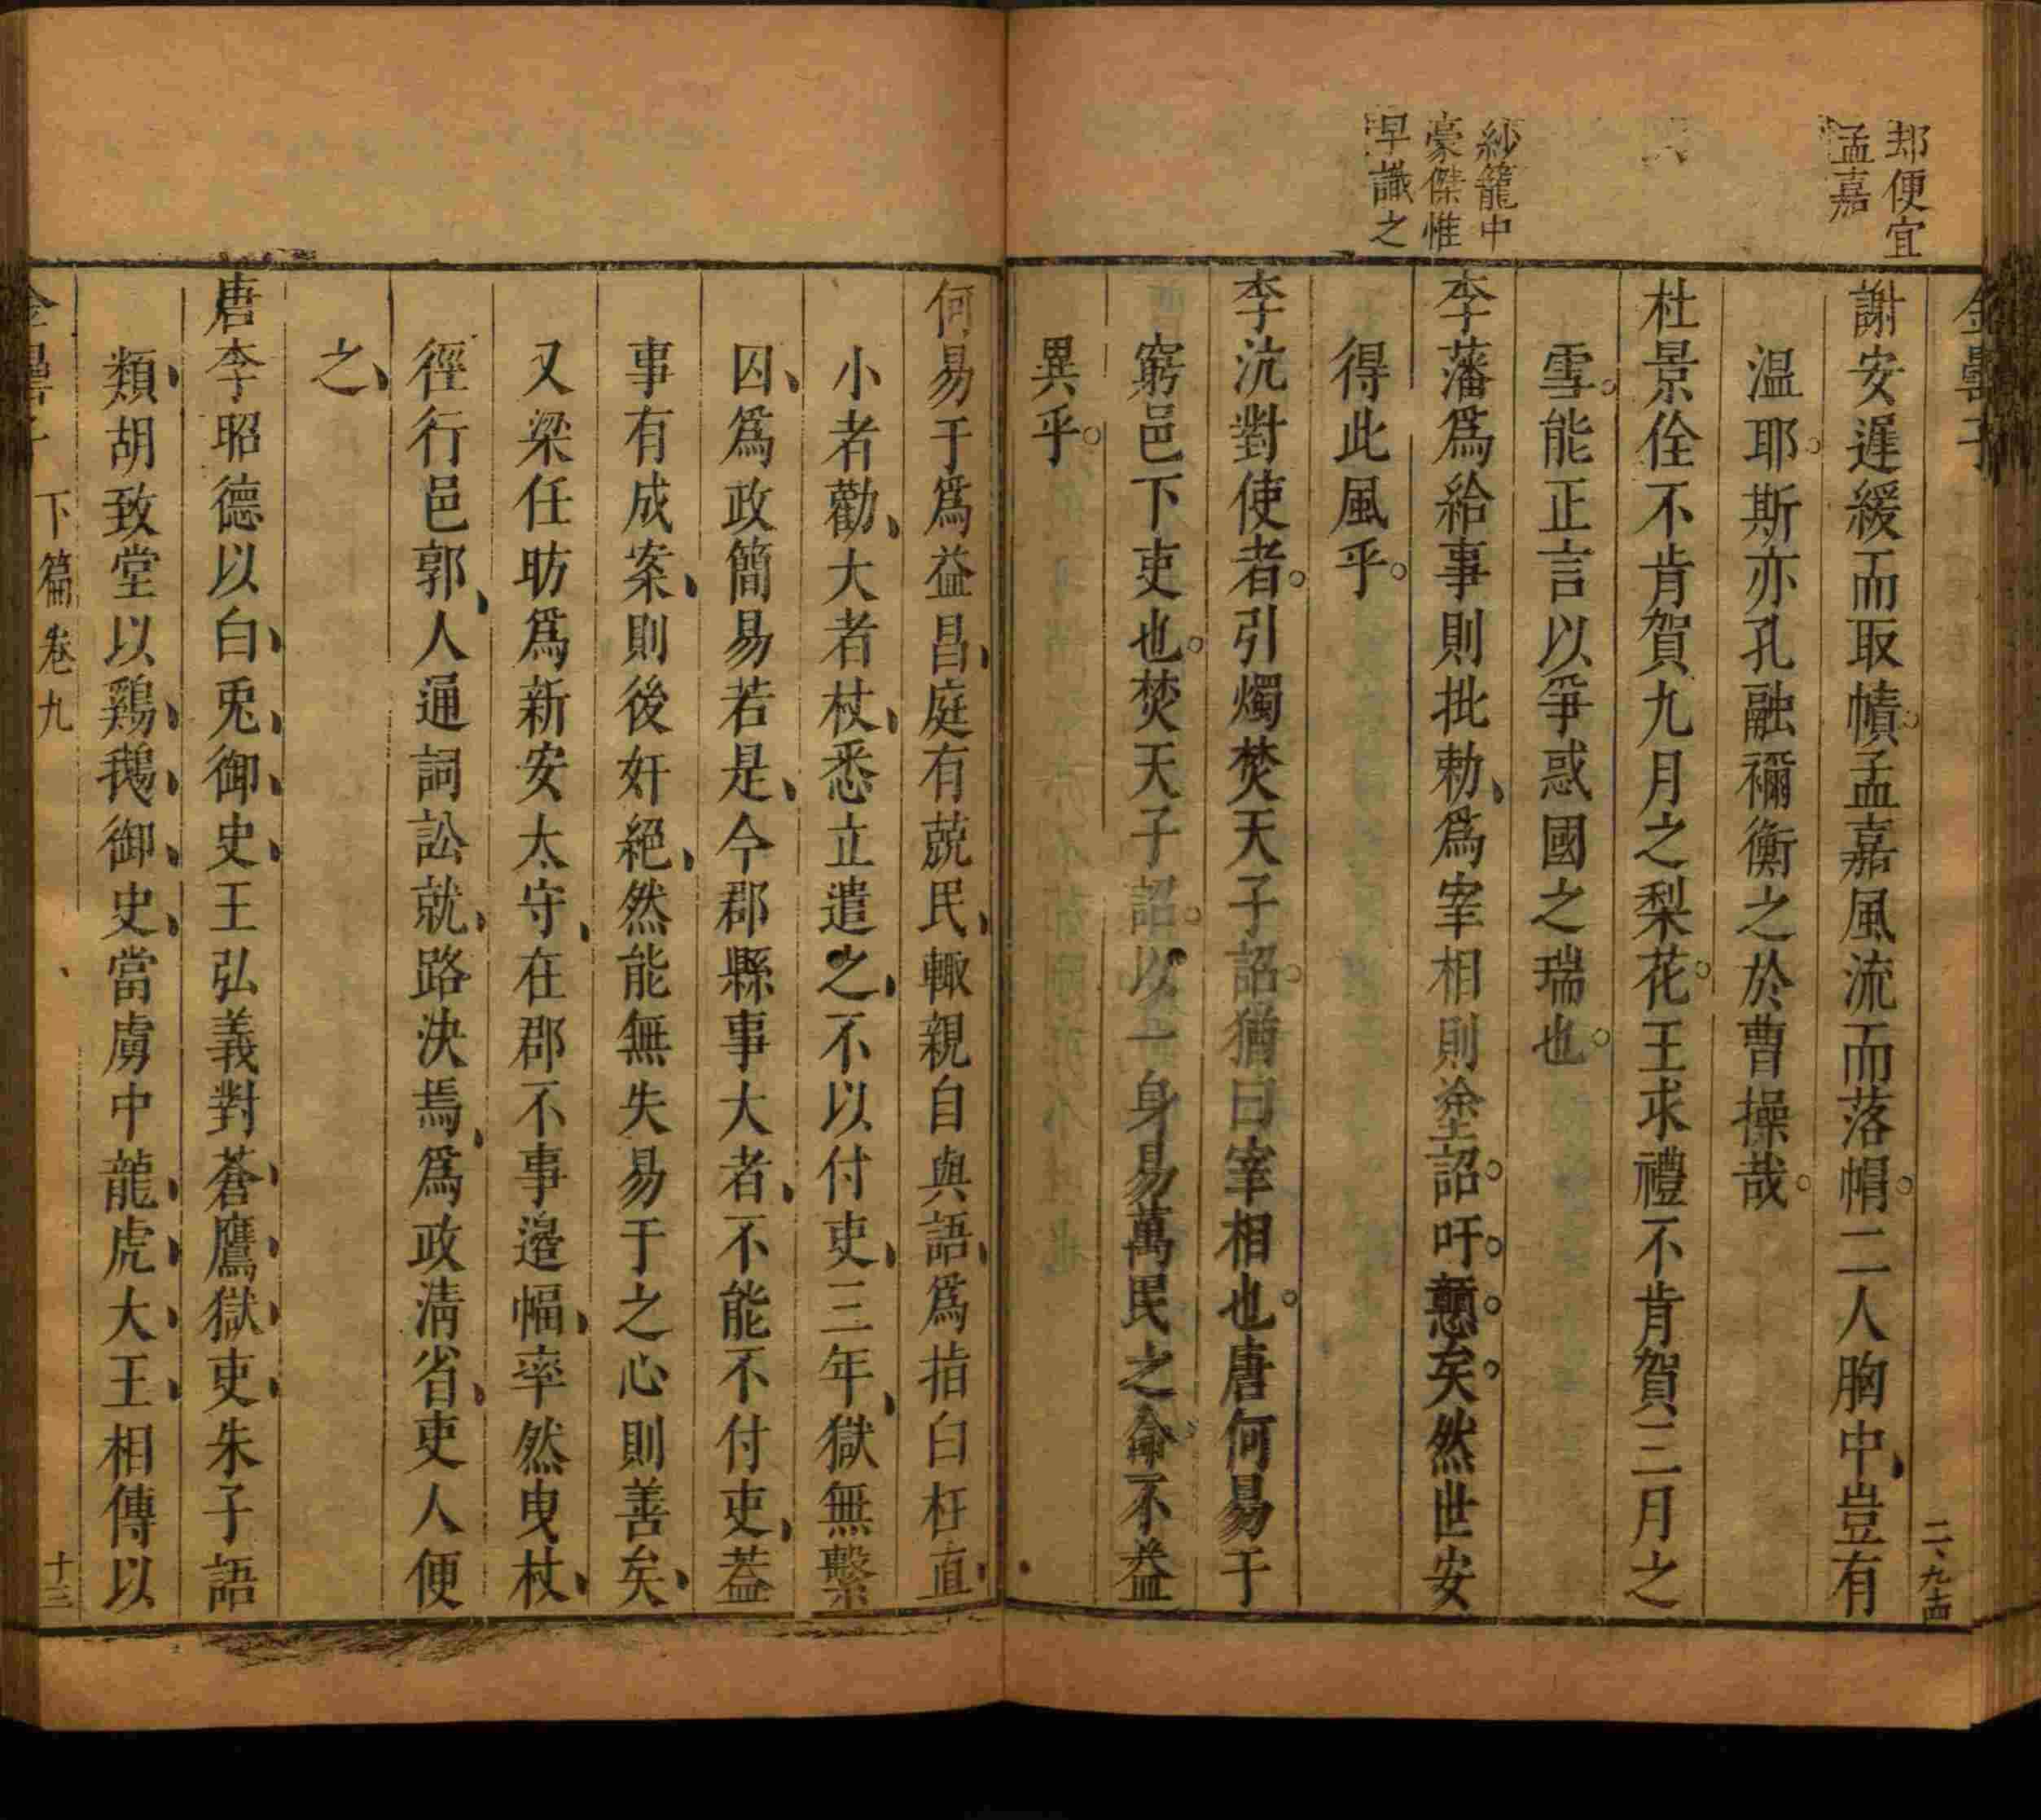 却便宜
孟嘉
紗籠中
豪傑惟
早識之
金罍子
二九十四
謝安遲緩而取幘孟嘉風流而落帽二人胸中豈有
温耶斯亦孔融禰衡之於曹操哉
杜景佺不肯賀九月之梨花王求禮不肯賀三月之
雪能正言以爭惑國之瑞也
李藩爲給事則批勅爲宰相則塗詔吁戅矣然世安
得此風乎
李沆對使者引燭焚天子詔猶曰宰相也唐何易于
窮邑下吏也焚天子詔以一身易萬民之命不益
異乎
何易于爲益昌庭有兢民輙親自與語爲指白枉直
小者勸大者杖悉立遣之不以付吏三年獄無繫
囚爲政簡易若是今郡縣事大者不能不付吏葢
事有成案則後奸絕然能無失易于之心則善矣
又梁任昉爲新安太守在郡不事邉幅率然曳杖
徑行邑郭人通詞訟就路決焉爲政淸省吏人便
之
唐李昭德以白兎御史王弘義對蒼鷹獄吏朱子語
類胡致堂以鷄鵝御史當虜中龍虎大王相傳以
金罍子
下篇卷九
十三